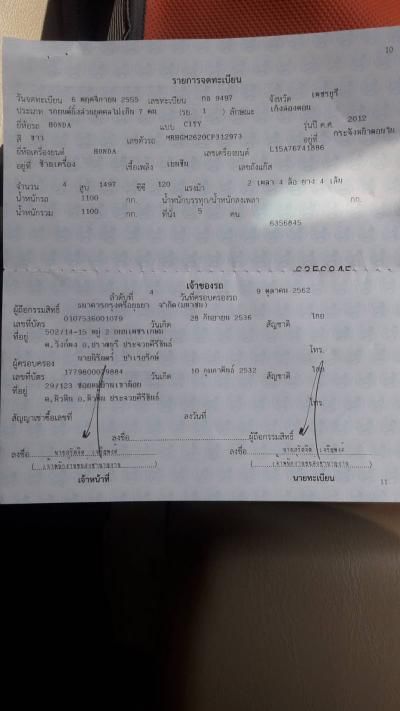 10
รายการจดทะเบียน
วันจดทะเบียน 6 พฤศจิกายน 2555 เลขทะเบียน กธ 9497 จังหวัด เพชรบุรี
ประเภท รถยนต์นั่งส่วนบุคคลไม่เกิน 7 คน (รย. 1 ) ลักษณะ เก๋งสองตอน
ยี่ห้อรถ HONDA แบบ CITY รุ่นปี ค.ศ. 2012
สี ขาว เลขตัวรถ MRHGM2620CP312973 อยู่ที่
ยี่ห้อเครื่องยนต์ HONDA เลขเครื่องยนต์ L15A76741886
อยู่ที่ ซ้ายเครื่อง เชื้อเพลิง เบนซิน เลขถังแก๊ส
จำนวน 4 สูบ 1497 ซีซี 120 แรงม้า 2 เพลา 4 ล้อ ยาง 4 เส้น
น้ำหนักรถ 1100 กก. น้ำหนักบรรทุก/น้ำหนักลงเพลา กก.
น้ำหนักรวม 1100 กก. ที่นั่ง 5 คน
6356845
6356845
เจ้าของรถ
ลำดับที่ 4 วันที่ครอบครองรถ 9 ตุลาคม 2562
ผู้ถือกรรมสิทธิ์ ธนาคารกรุงศรีอยุธยา จำกัด(มหาชน)
เลขที่บัตร 0107536001079 วันเกิด 28 กันยายน 2536 สัญชาติ ไทย
ที่อยู่ 502/14-15 หมู่ 2 ถนนเพชรเกษม
ต.วังก์พง อ.ปราณบุรี ประจวบคีรีขันธ์ โทร.
ผู้ครอบครอง
เลขที่บัตร วันเกิด 10 กุมภาพันธ์ 2532 สัญชาติ ไทย
ที่อยู่ 29/123
ต.หัวหิน อ.หัวหิน ประจวบคีรีขันธ์ โทร.
สัญญาเช่าซื้อเลขที่ ลงวันที่
ลงชื่อ ผู้ถือกรรมสิทธิ์
ลงชื่อ ลงชื่อ
เจ้าหน้าที่ นายทะเบียน
11